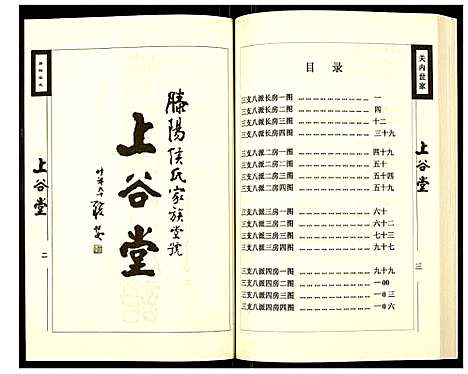 滕陽侯氏家族堂號
上谷堂
上谷堂
二
关内世家
上谷堂
三
目录
三支八派长房一图 …… …… …… …… 一
三支八派长房二图 …… …… …… …… 四
三支八派长房三图 …… …… …… …… 十二
三支八派长房四图 …… …… …… …… 三十九
三支八派二房一图 …… …… …… …… 四十九
三支八派二房二图 …… …… …… …… 五十
三支八派二房三图 …… …… …… …… 五十四
三支八派二房四图 …… …… …… …… 五十九
三支八派三房一图 …… …… …… …… 六十
三支八派三房二图 …… …… …… …… 六十二
三支八派三房三图 …… …… …… …… 七十三
三支八派三房四图 …… …… …… …… 九十七
三支八派四房一图 …… …… …… …… 九十九
三支八派四房二图 …… …… …… …… 一00
三支八派四房三图 …… …… …… …… 一0三
三支八派四房四图 …… …… …… …… 一0六